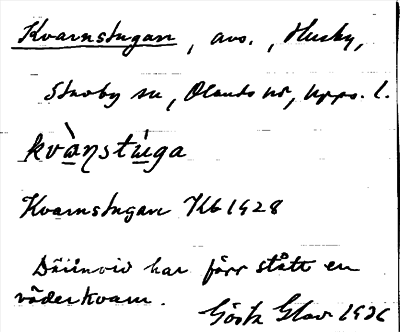 Kvarnstugan, avs., Husby,
Skuttunge sn, Olands hd, Upps. l.
kvànstùga
Kvarnstugan Kb 1928
Därinvid har förr stått en
väderkvarn.
Gösta Glav 1926